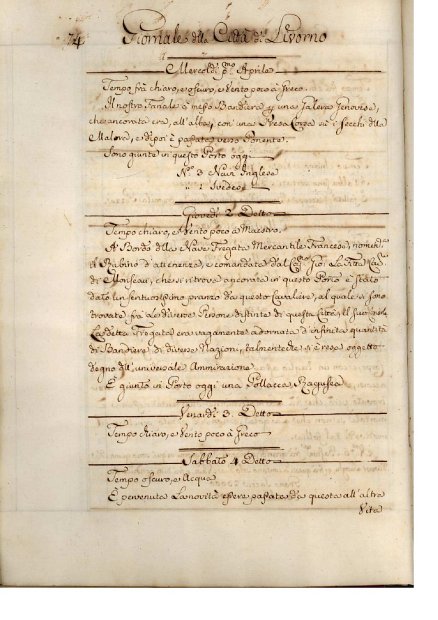 74 Giornale della Città di Livorno
Mercoldì p.mo Aprile
Tempo frà chiaro, e oscuro, e Vento poco à Greco.
Il nostro Fanale à messo Bandiera p una Galera Genovese,
che ancorata era, all'alba, con una Presa Corsa trà i Secchi della
Malora, e dipoi è passata verso Ponente.
Sono giunte in questo Porto oggi
N.o 3 Navi Inglese
" 1 Svedese
Giovedì 2 Detto
Tempo chiaro, e Vento poco à Maestro.
A Bordo della Nave Fregata Mercantile Francese, nomin.ta
il Rubino d'attenenza, e comandata dal Cap.
di che si ritrova ancorata in questo Porto è stato
dato un sontuosissimo pranzo da questo Cavaliere, al quale si sono
trovate frà le diverse Persone distinte di questa Città, il Suo
La detta Fregata era vagamente adornata d'infinita quantità
di Bandiere di diverse Nazioni, talmente che si è resa oggetto
degno dell'universale Ammirazione.
È giunta in Porto oggi una Pollacca Ragusea
Venardì 3. Detto
Tempo chiaro, e Vento poco à Greco
Sabbato 4 Detto
Tempo oscuro, e Acqua
È pervenuta La novità essere passata da questa all'altra
Vita